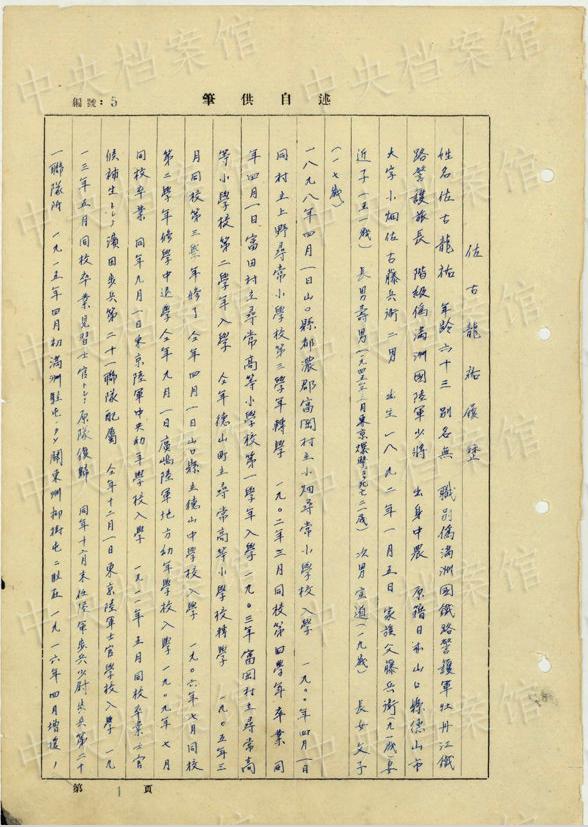 編號：5
述自供筆
佐古龍祐履歷
姓名佐古龍祐 年齡六十三 別名無 職別偽滿洲國鐵路警護軍牡丹江鐵
路警護旅長 階級偽滿洲國陸軍少將 出身中農 原籍日本山口縣德山市
大字小畑佐古藤兵衛二男 出生一八九二年一月五日 家族父藤兵衛(九一歲)妻
近子(五一歲) 長男壽男(一九四五年 月東京爆擊 死亡二一歲) 次男 (一九歲) 長女文子
(一七歲)
一八九八年四月一日山口縣都濃郡富岡村立小畑尋常小學校入學 一九〇〇年四月一日
同村立上野尋常小學校第三學年轉學 一九〇二年三月同校第四學年卒業 同
年四月一日富田村立尋常高等小學校第一學年入學 一九〇三年富岡村立尋常高
等小學校第二學年入學 仝年德山町立尋常高等小學校轉學 一九〇五年三
月同校第三學年修了 仝年四月一日山口縣立德山中學校入學 一九〇六年七月同校
第二學年修學中退學 仝年九月一日廣嶋陸軍地方幼年學校入學 一九〇九年七月
同校卒業 同年九月一日東京陸軍中央幼年學校入學 一九一一年五月同校卒業士官
候補生トシテ濱田步兵第二十一聯隊配屬 仝年十二月一日東京陸軍士官學校入學 一九
一三年五月同校卒業見習士官トシテ原隊復歸 同年十二月末任陸軍步兵少尉步兵第二十
一聯隊附 一九一五年四月初滿洲駐屯ノタメ關東洲柳樹屯ニ駐在 一九一六年四月增設ノ
第 1 頁
中央档案馆
中央档案馆
中央档案馆
中央档案馆
中央档案馆
中央档案馆